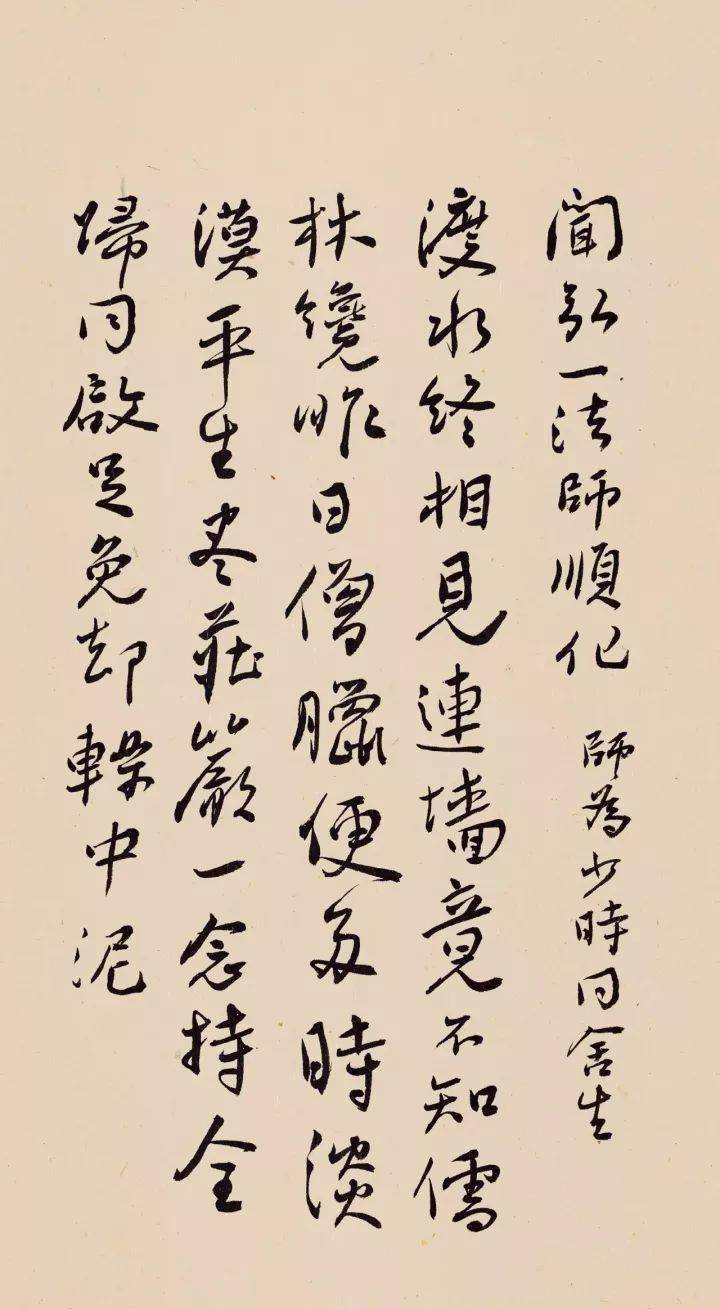 聞弘一法師順化 師為少時同舍生
渡水終相見連墻竟不知儒
林纔昨日僧臘便多時淡
漠平生尽莊嚴一念持全
歸同啟足免却中泥